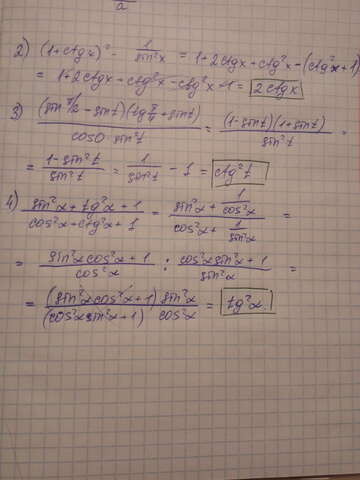 a
2) (1+ctgx)² - 1/sin²x = 1+2ctgx+ctg²x-(ctg²x+1)
= 1+2ctgx+ctg²x-ctg²x-1 = 2ctgx
3) (sin π/2 - sint)(tg π/4 + sint) / cos0 · sin²t = (1-sint)(1+sint) / sin²t =
= 1-sin²t / sin²t = 1/sin²t - 1 = ctg²t
4) sin²x+tg²x+1 / cos²x+ctg²x+1 = sin²x + 1/cos²x / cos²x + 1/sin²x =
= sin²x cos²x+1 / cos²x : cos²x sin²x+1 / sin²x =
= (sin²x cos²x+1) sin²x / (cos²x sin²x+1) cos²x = tg²x.